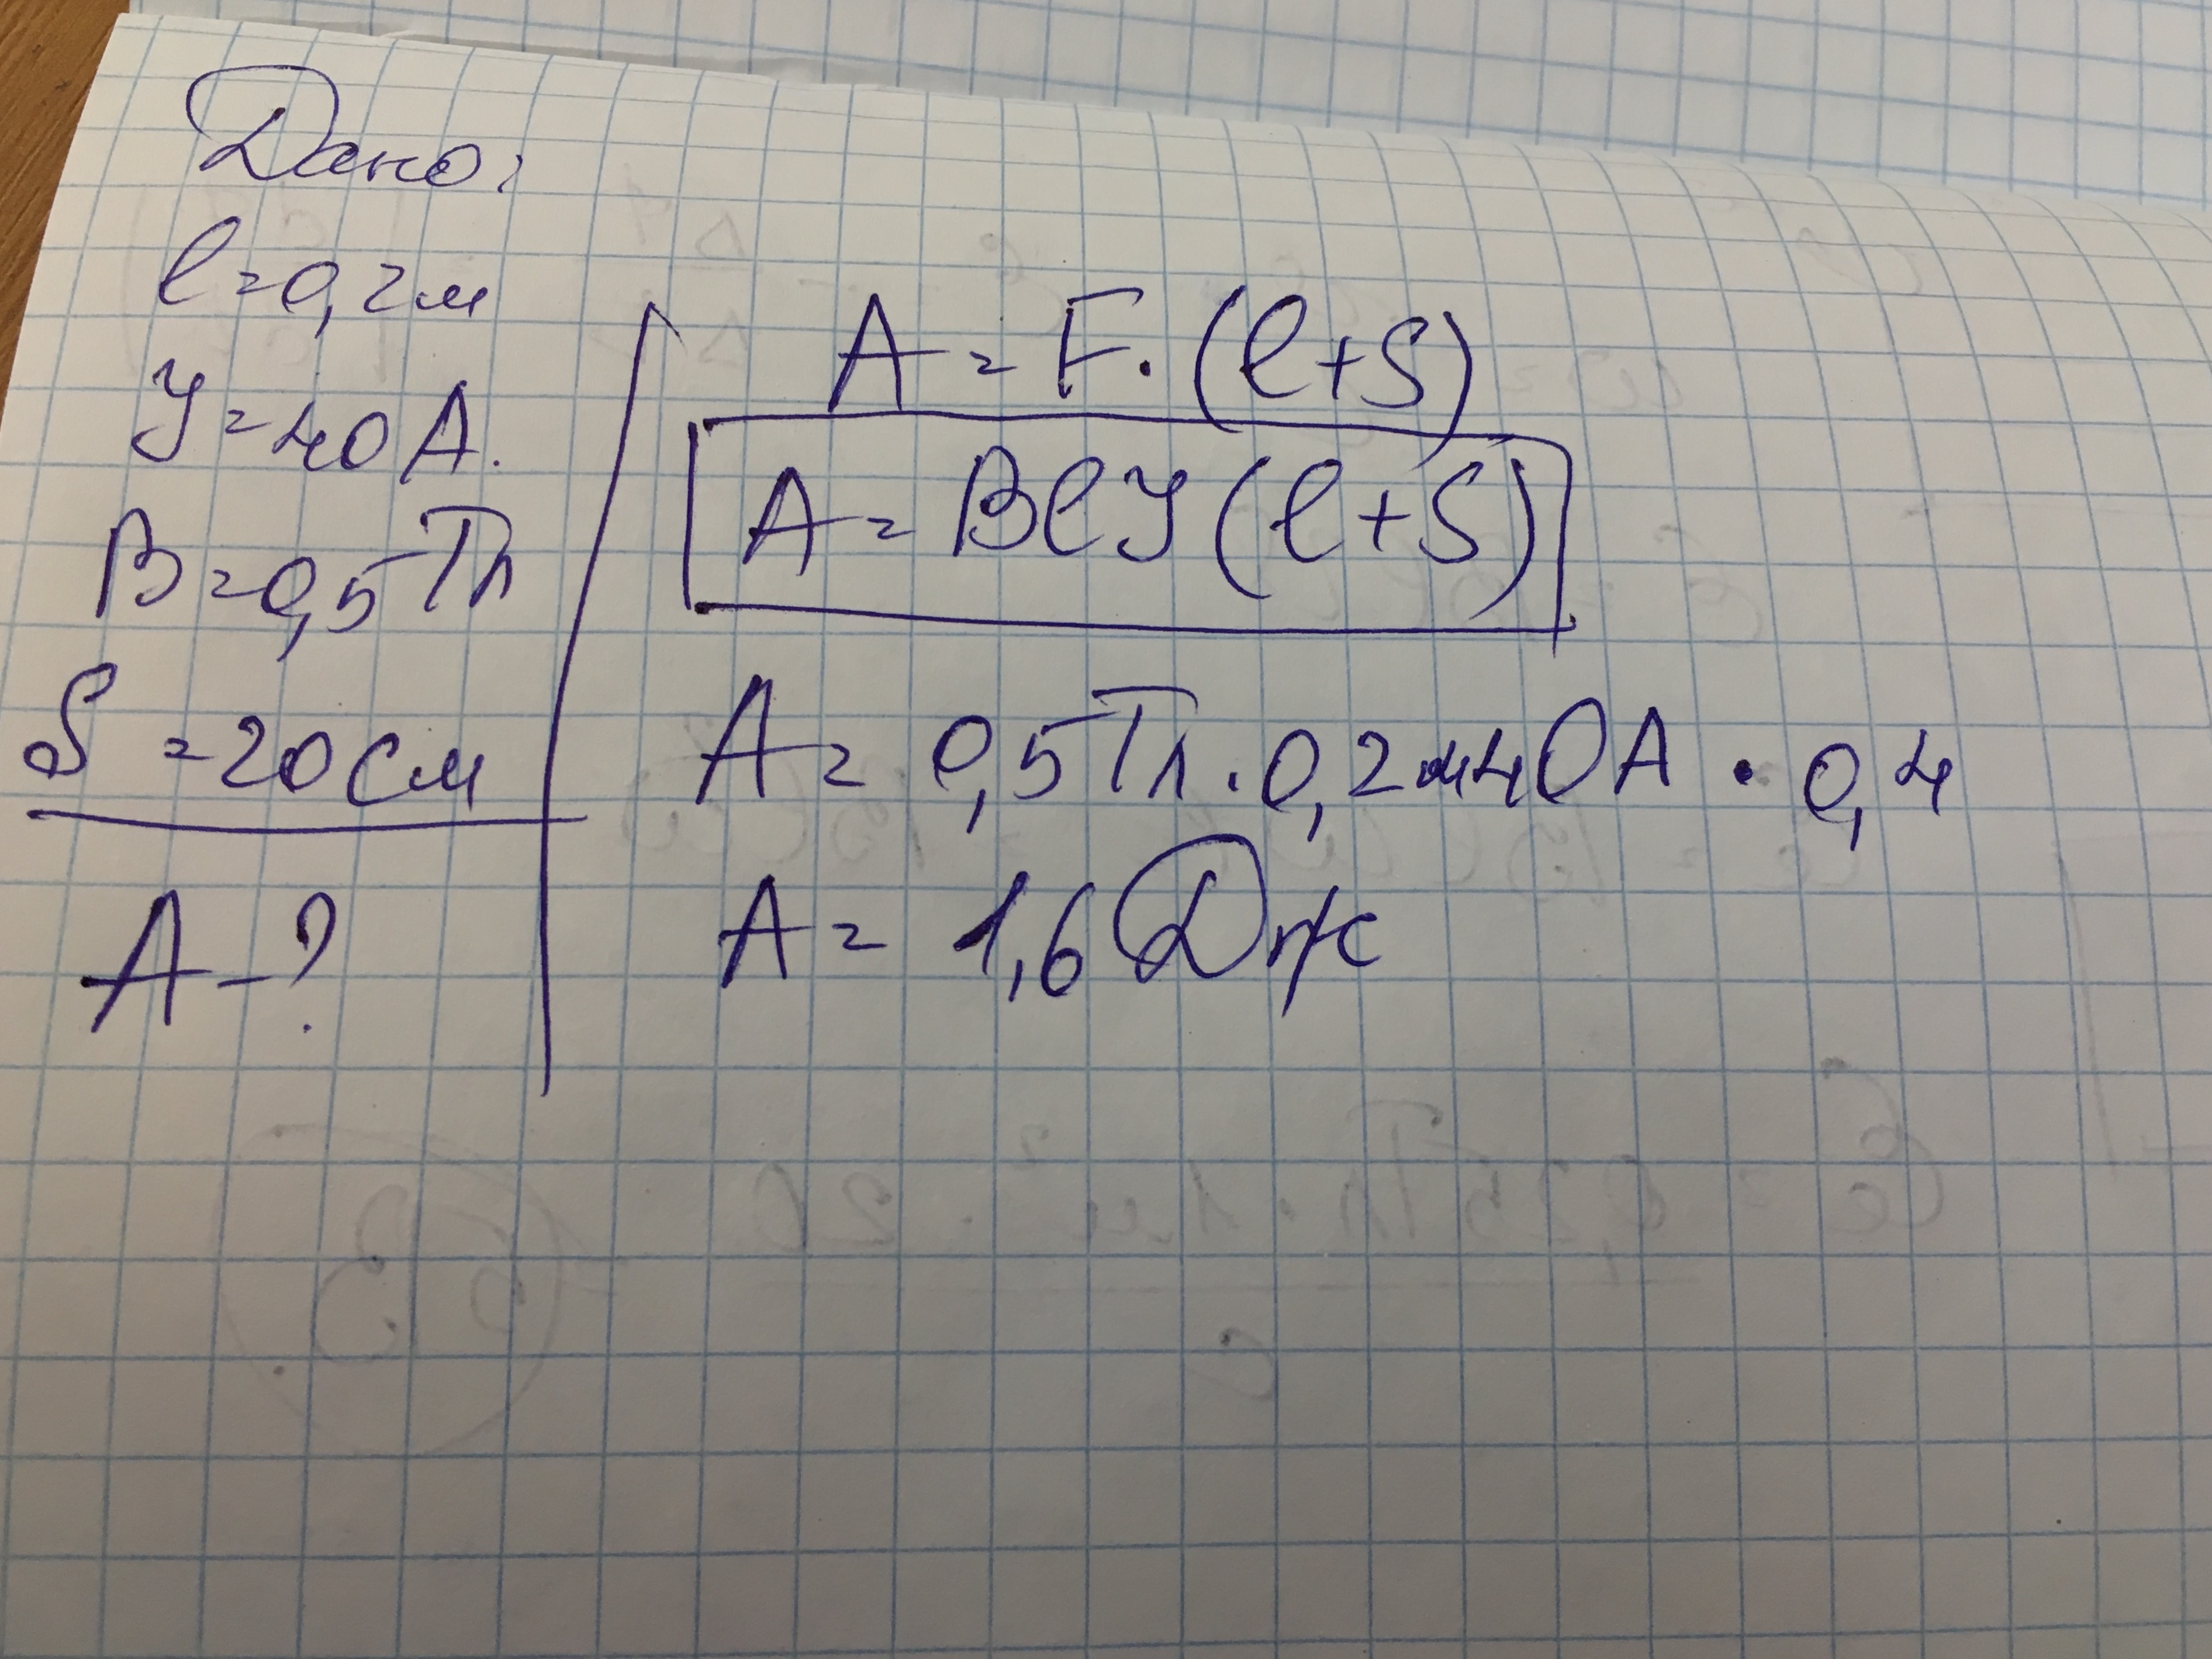 Дано:
l=0,2м
I=40А.
B=0,5Тл
S=20см
A-?
A=F·(l+S)
A=BlI(l+S)
A=0,5Тл·0,2м·40А·0,4
A=1,6Дж